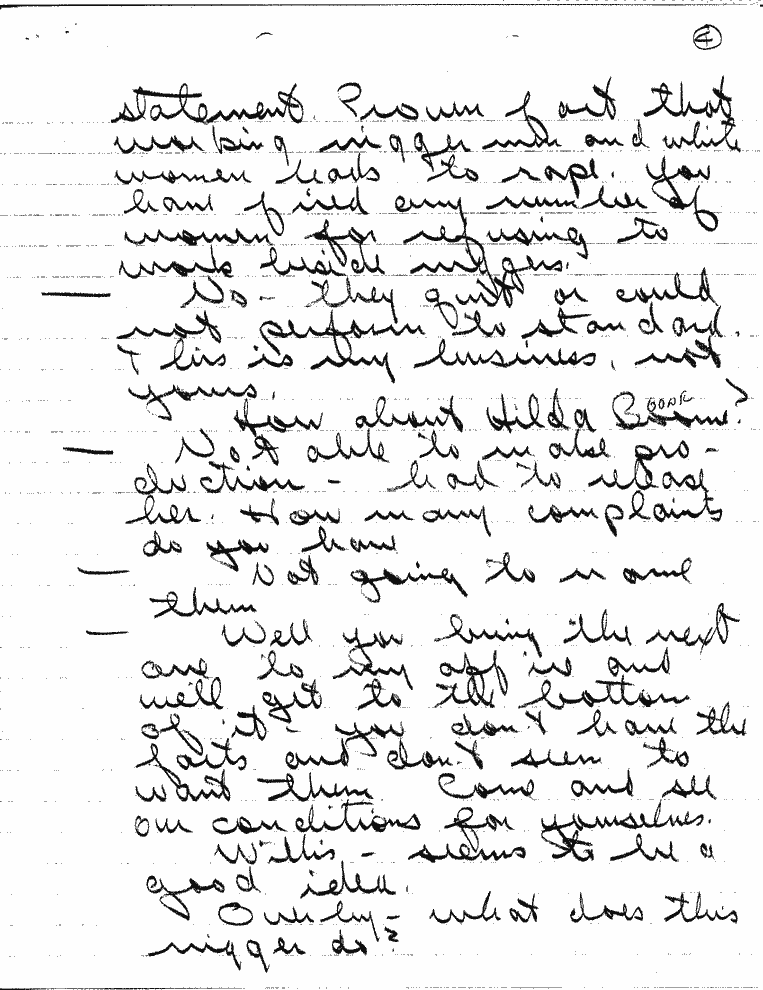 4
statement. Proven fact that
working nigger men and white
women leads to rape. You
have fired any number of
women for refusing to
work beside niggers.
— No - they quit or could
not perform to standard.
This is my business, not
yours.
How about Hilda Boone?
— Not able to make pro-
duction - had to release
her. How many complaints
do you have
— Not going to name
them
— Well you bring the next
one to my office and
we'll get to the bottom
of it - you don't have the
facts and don't seem to
want them. Come and see
our conditions for yourselves.
Willis - seems to be a
good idea.
Overby - what does this
nigger do?